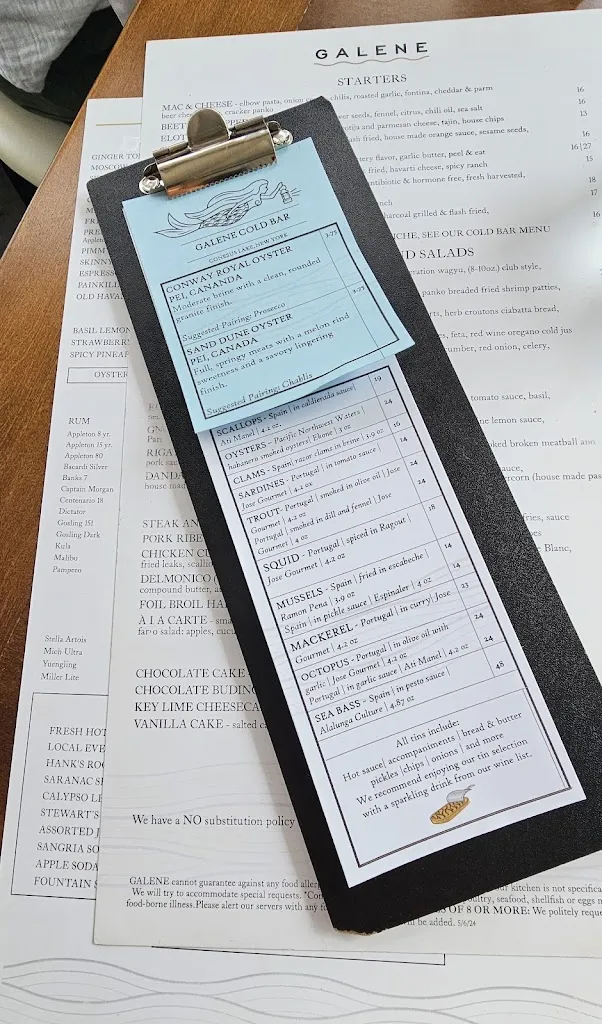 GALENE
STARTERS
MAC & CHEESE - elbow pasta, onion chilis, roasted garlic, fontina, cheddar & parm
beer cracker panko 16
BEET seeds, fennel, citrus, chili oil, sea salt 16
and parmesan cheese, tajin, house chips 13
fried, house made orange sauce, sesame seeds, 16
flavor, garlic butter, peel & eat 16|27
fried, havarti cheese, spicy ranch 15
antibiotic & hormone free, fresh harvested,
18
ranch 17
charcoal grilled & flash fried,
16
SEE OUR COLD BAR MENU
SALADS
wagyu, (8-10oz.) club style,
panko breaded fried shrimp patties,
herb croutons ciabatta bread,
feta, red wine oregano cold
red onion, celery,
tomato sauce, basil,
lemon sauce,
broken meatball
sauce,
(house made
fries, sauce
Blanc,
GALENE COLD BAR
CONESUS LAKE, NEW YORK
CONWAY ROYAL OYSTER 3.75
PEI, CANANDA
Moderate brine with a clean, rounded
granite finish.
Suggested Pairing: Prosecco
SAND DUNE OYSTER 3.75
PEI, CANADA
Full, springy meats with a melon rind
sweetness and a savory lingering
finish.
Suggested Pairing: Chablis
SCALLOPS - Spain | in caldierada sauce| 19
Ati Manel | 4.2 oz.
OYSTERS - Pacific Northwest Waters | 24
habanero smoked oysters| Ekone | 3 oz
CLAMS - Spain| razor clams in brine | 3.9 oz 16
SARDINES - Portugal | in tomato sauce | 14
Jose Gourmet | 4.2 oz
TROUT- Portugal | smoked in olive oil | Jose 24
Gourmet | 4.2 oz
Portugal | smoked in dill and fennel | Jose 24
Gourmet | 4 oz
SQUID - Portugal | spiced in Ragout | 18
Jose Gourmet | 4.2 oz
MUSSELS - Spain | fried in escabeche | 14
Ramon Pena | 3.9 oz
Spain | in pickle sauce | Espinaler | 4 oz 14
MACKEREL - Portugal | in curry| Jose 23
Gourmet | 4.2 oz
OCTOPUS - Portugal | in olive oil with 24
garlic | Jose Gourmet | 4.2 oz
Portugal | in garlic sauce | Ati Manel | 4.2 oz 24
SEA BASS - Spain | in pesto sauce | 48
Alalunga Culture | 4.87 oz
All tins include:
Hot sauce| accompaniments | bread & butter
pickles |chips | onions | and more
We recommend enjoying our tin selection
with a sparkling drink from our wine list.
GINGER
MOSCOW
Appleton
PIMM
SKINNY
ESPRESS
PAINKILL
OLD HAVA
BASIL LEMON
STRAWBERR
SPICY PINEAP
OYSTER
RUM
Appleton 8 yr.
Appleton 15 yr.
Appleton 80
Bacardi Silver
Banks 7
Captain Morgan
Centenario 18
Dictator
Gosling 151
Gosling Dark
Kula
Malibu
Pampero
Stella Artois
Mich Ultra
Yuengling
Miller Lite
FRESH HOT
LOCAL EVE
HANK'S ROO
SARANAC
CALYPSO LE
STEWART'S
ASSORTED
SANGRIA SO
APPLE SODA
FOUNTAIN S
STEAK AN
PORK RIBE
CHICKEN CU
fried leaks, scalli
DELMONICO (
compound butter,
FOIL BROIL HA
À LA CARTE - sma
farro salad: apples, cucu
CHOCOLATE CAKE -
CHOCOLATE BUDIN
KEY LIME CHEESECA
VANILLA CAKE - salted
We have a NO substitution policy
GALENE cannot guarantee against any food aller kitchen is not specifica
We will try to accommodate special requests. *Con poultry, seafood, shellfish or eggs
food-borne illness.Please alert our servers with any OF 8 OR MORE: We politely reque
be added. 5/6/24